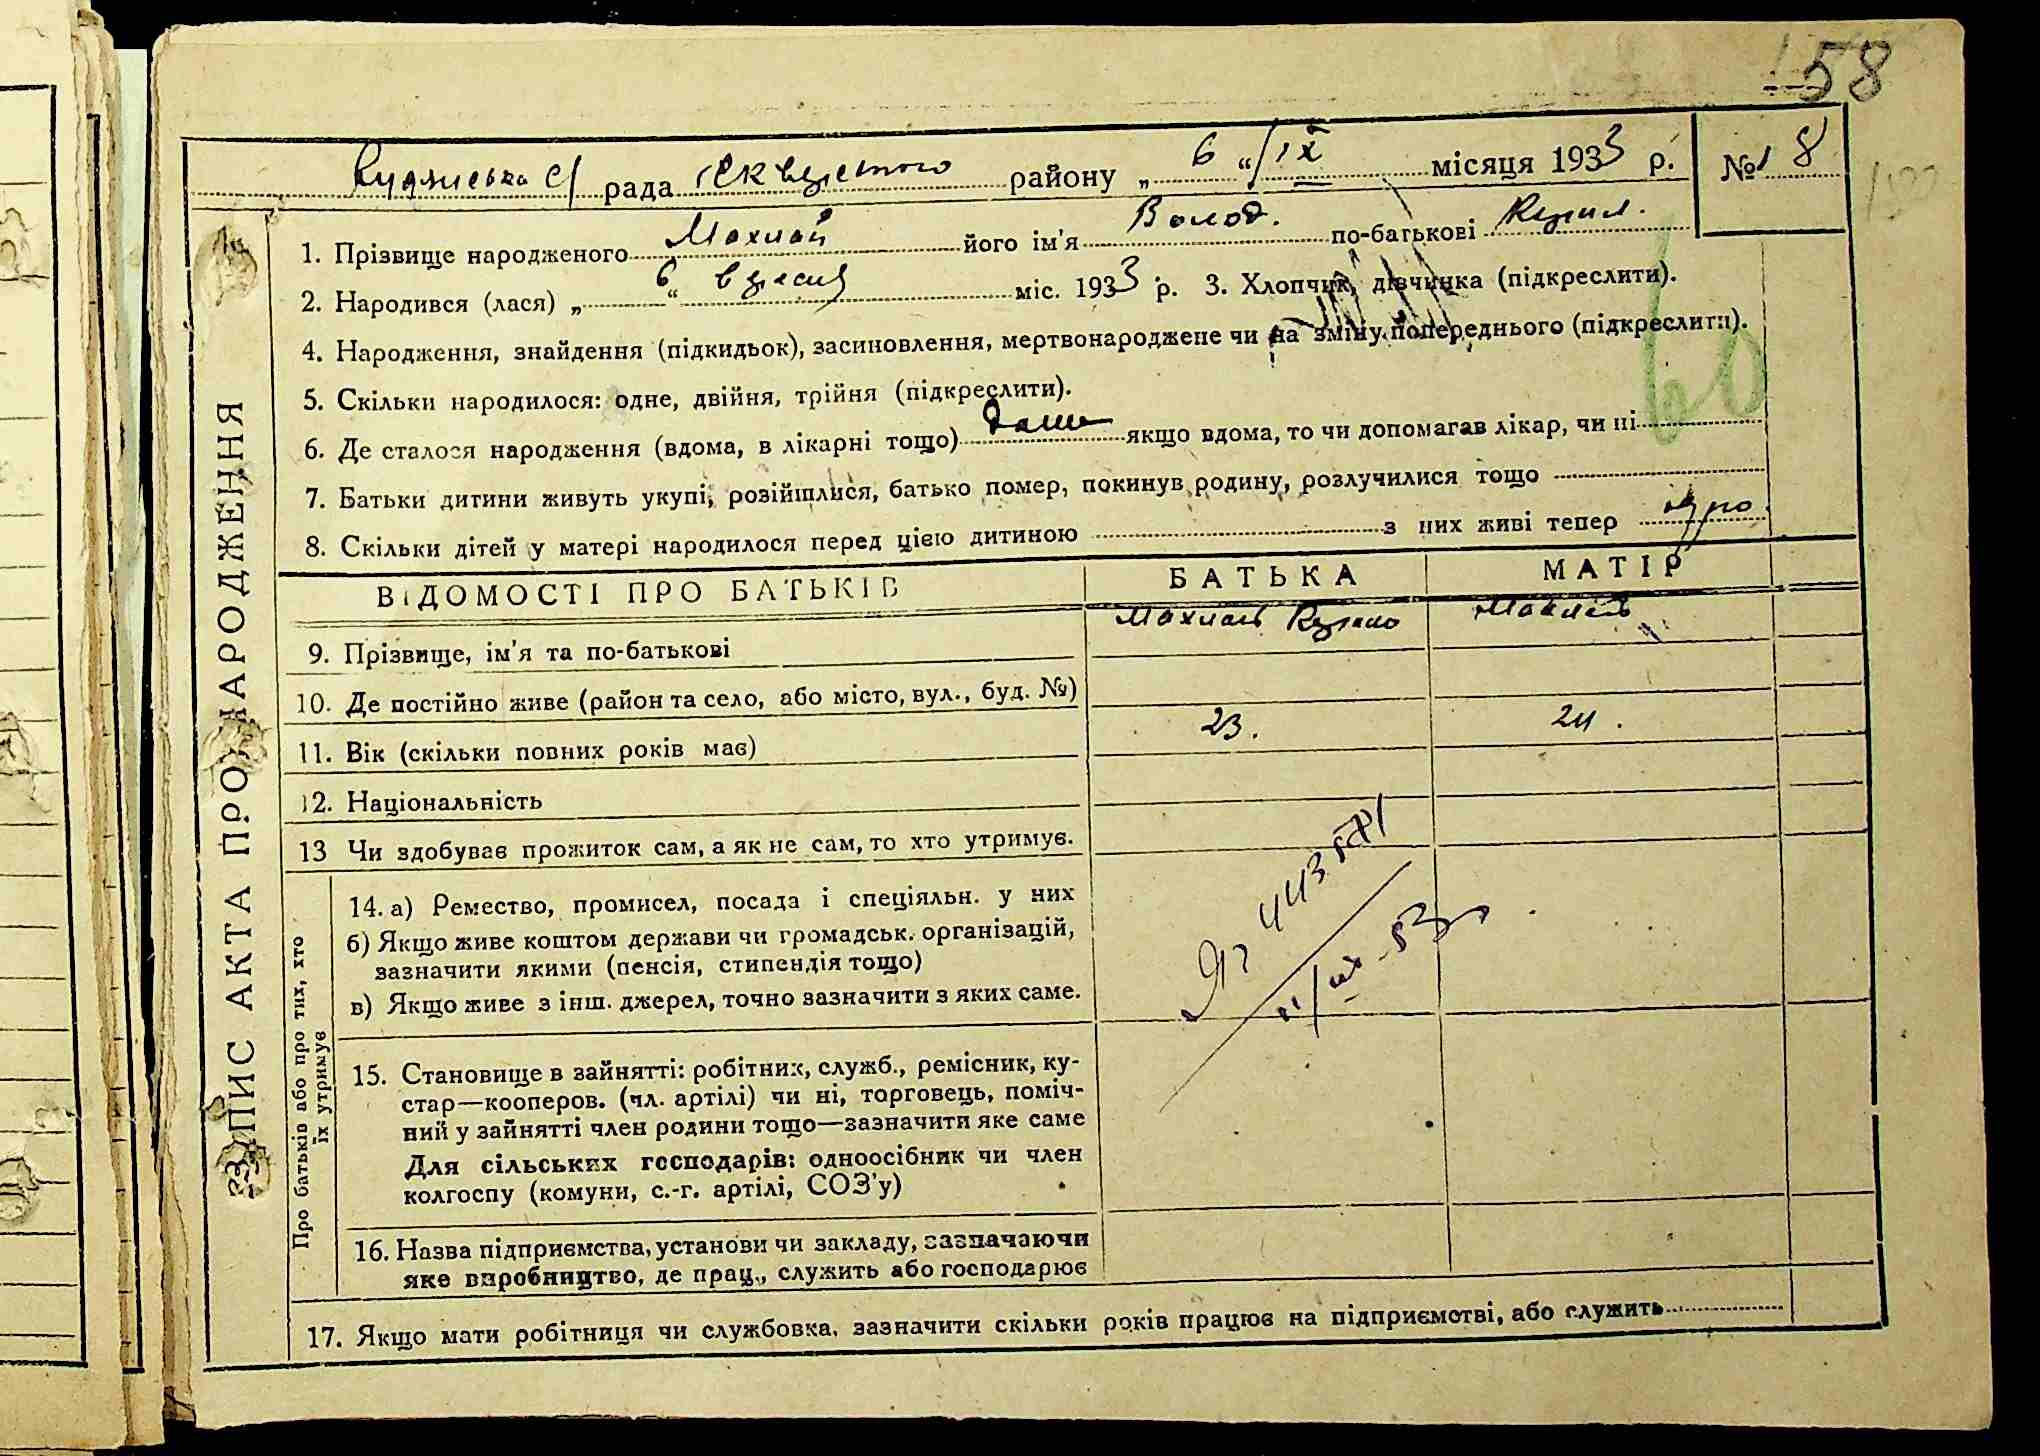 58
рада району „ 6 “ / ІХ місяця 1933 р. № 8
1. Прізвище народженого Махлай його ім'я Волод. по-батькові
2. Народився (лася) „ 6 “ вресня міс. 1933 р. 3. Хлопчик, дівчинка (підкреслити).
4. Народження, знайдення (підкидьок), засиновлення, мертвонароджене чи на зміну попереднього (підкреслити).
5. Скільки народилося: одне, двійня, трійня (підкреслити).
6. Де сталося народження (вдома, в лікарні тощо) якщо вдома, то чи допомагав лікар, чи ні
60
7. Батьки дитини живуть укупі, розійшлися, батько помер, покинув родину, розлучилися тощо
8. Скільки дітей у матері народилося перед цією дитиною з них живі тепер
ВІДОМОСТІ ПРО БАТЬКІВ БАТЬКА МАТІР
9. Прізвище, ім'я та по-батькові Махлай
10. Де постійно живе (район та село, або місто, вул., буд. №)
11. Вік (скільки повних років має) 23. 24.
12. Національність
13 Чи здобував прожиток сам, а як не сам, то хто утримує.
14. а) Ремество, промисел, посада і спеціяльн. у них
б) Якщо живе коштом держави чи громадськ. організацій,
зазначити якими (пенсія, стипендія тощо)
в) Якщо живе з інш. джерел, точно зазначити з яких саме.
15. Становище в зайнятті: робітник, служб., ремісник, ку-
стар—кооперов. (чл. артілі) чи ні, торговець, поміч-
ний у зайнятті член родини тощо—зазначити яке саме
Для сільських господарів: одноосібник чи член
колгоспу (комуни, с.-г. артілі, СОЗ'у)
16. Назва підприємства, установи чи закладу, зазначаючи
яке виробництво, де прац., служить або господарює
17. Якщо мати робітниця чи службовка, зазначити скільки років працює на підприємстві, або служить
ЗАПИС АКТА ПРО НАРОДЖЕННЯ
Про батьків або про тих, хто
їх утримує